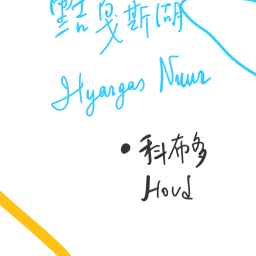 戛斯湖
Hyargas Nuur
科布多
Hovd